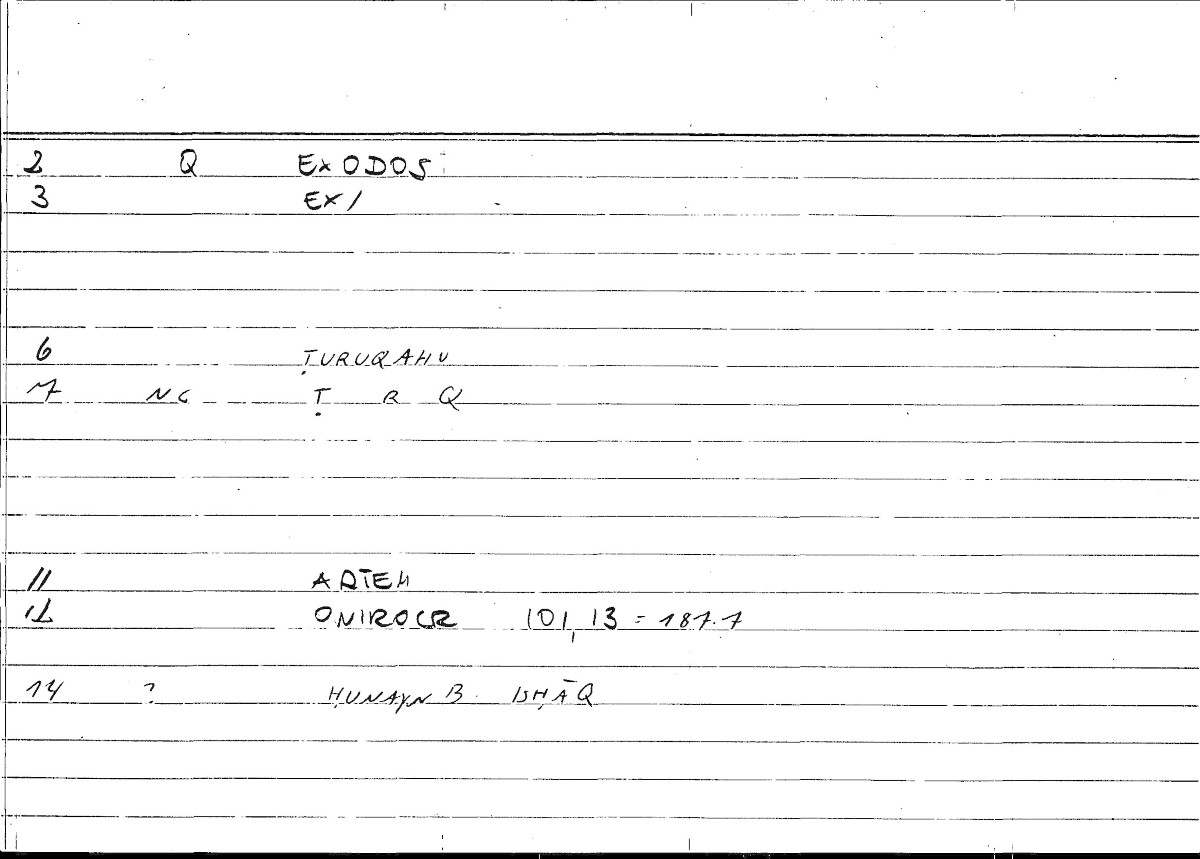 2 Q EXODOS
3 EX/
6 ṬURUQAHU
7 NC Ṭ R Q
11 ARTEM
12 ONIROCR 101,13 = 187.7
14 ? ḤUNAYN B. ISḤĀQ